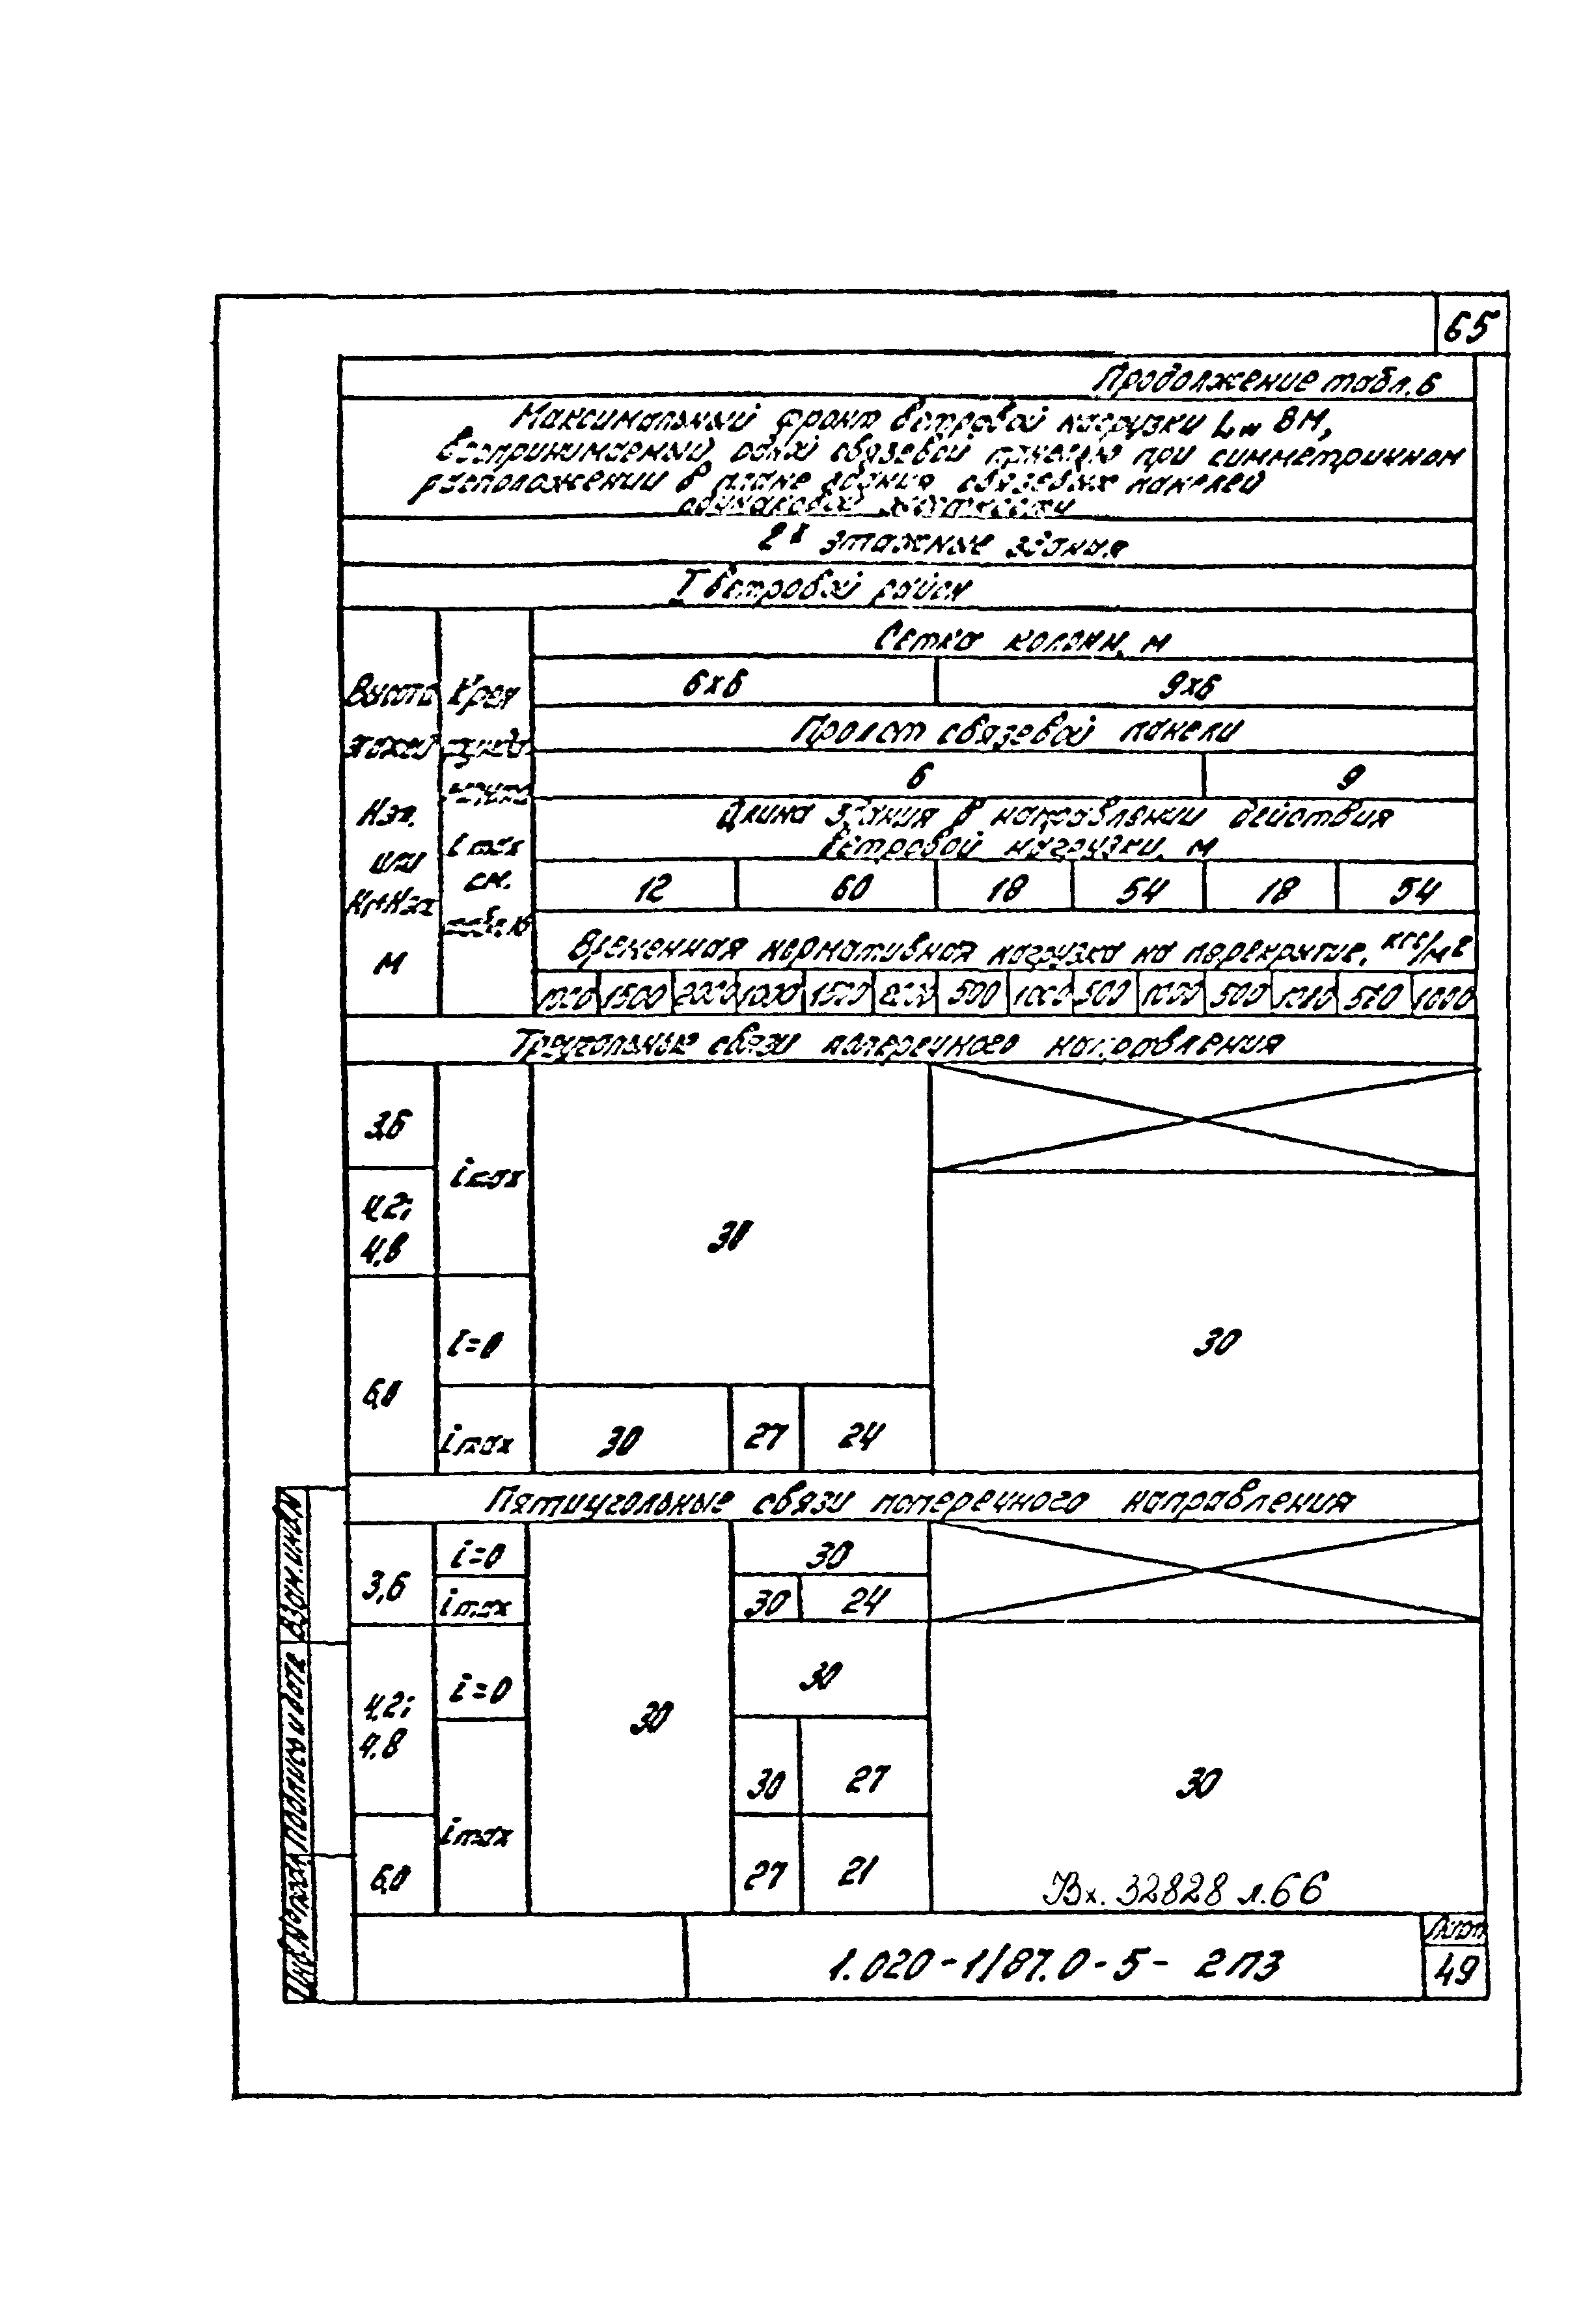 65
Продолжение табл. 6
Максимальный фронт ветровой нагрузки Lw в м,
воспринимаемый одной связевой панелью при симметричном
расположении в плане здания связевых панелей
одинаковой жесткости
2х этажные здания
I ветровой район
Сетка колонн, м
Высота Крен
6х6 9х6
этажей
Пролет связевой панели
6 9
Нэт.
Длина здания в направлении действия
ветровой нагрузки, м
или i max
см.
12 60 18 54 18 54
табл. 16
Временная нормативная нагрузка на перекрытие, кгс/м2
м
1000 1500 2000 1000 1500 2000 500 1000 500 1000 500 1000 500 1000
Треугольные связи поперечного направления
3,6
i max
4,2;
4,8
30
i=0
30
6,0
i max 30 27 24
Пятиугольные связи поперечного направления
i=0 30
3,6
i max 30 24
i=0 30
4,2;
4,8
30
30 27 30
i max
6,0 27 21
Вх. 32828 л. 66
1.020-1/87.0-5- 2ПЗ
Лист
49
Взам. инв. №
Подпись и дата
Инв. № подл.